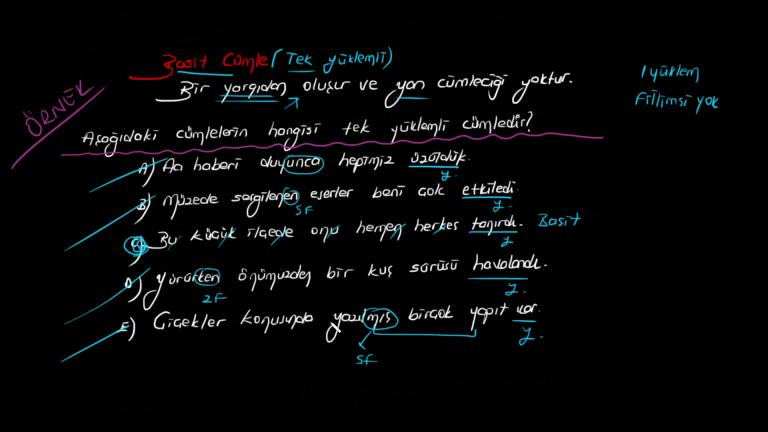 Basit Cümle (Tek yüklemli)
Bir yargıdan oluşur ve yan cümleciği yoktur.
1 yüklem
Fiilimsi yok
ÖRNEK
Aşağıdaki cümlelerin hangisi tek yüklemli cümledir?
A) Acı haberi duyunca hepimiz üzüldük.
y.
B) Müzede sergilenen eserler beni çok etkiledi.
SF
y.
C) Bu küçük ilçede onu hemen herkes tanırdı. Basit
y
D) Yürürken önümüzden bir kuş sürüsü havalandı.
ZF
y.
E) Çiçekler konusunda yazılmış birçok yapıt var.
y.
SF